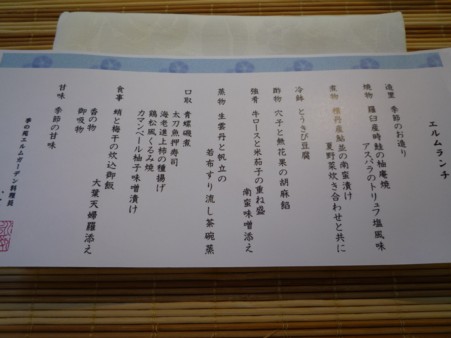 エルムランチ
造里 季節のお造り
焼物 羅臼産時鮭の柚庵焼
アスパラのトリュフ塩風味
煮物 積丹産鮎並の南蛮漬け
夏野菜炊き合わせと共に
冷鉢 とうきび豆腐
酢物 穴子と無花果の胡麻餡
強肴 牛ロースと米茄子の重ね盛
南蛮味噌添え
蒸物 生雲丹と帆立の
若布すり流し茶碗蒸
口取 青螺磯煮
太刀魚押寿司
海老速上柿の種揚げ
鶏松風くるみ焼
カマンベール柚子味噌漬け
食事 蛸と梅干の炊込御飯
大葉天婦羅添え
香の物
御吸物
甘味 季節の甘味
エルムガーデン料理長